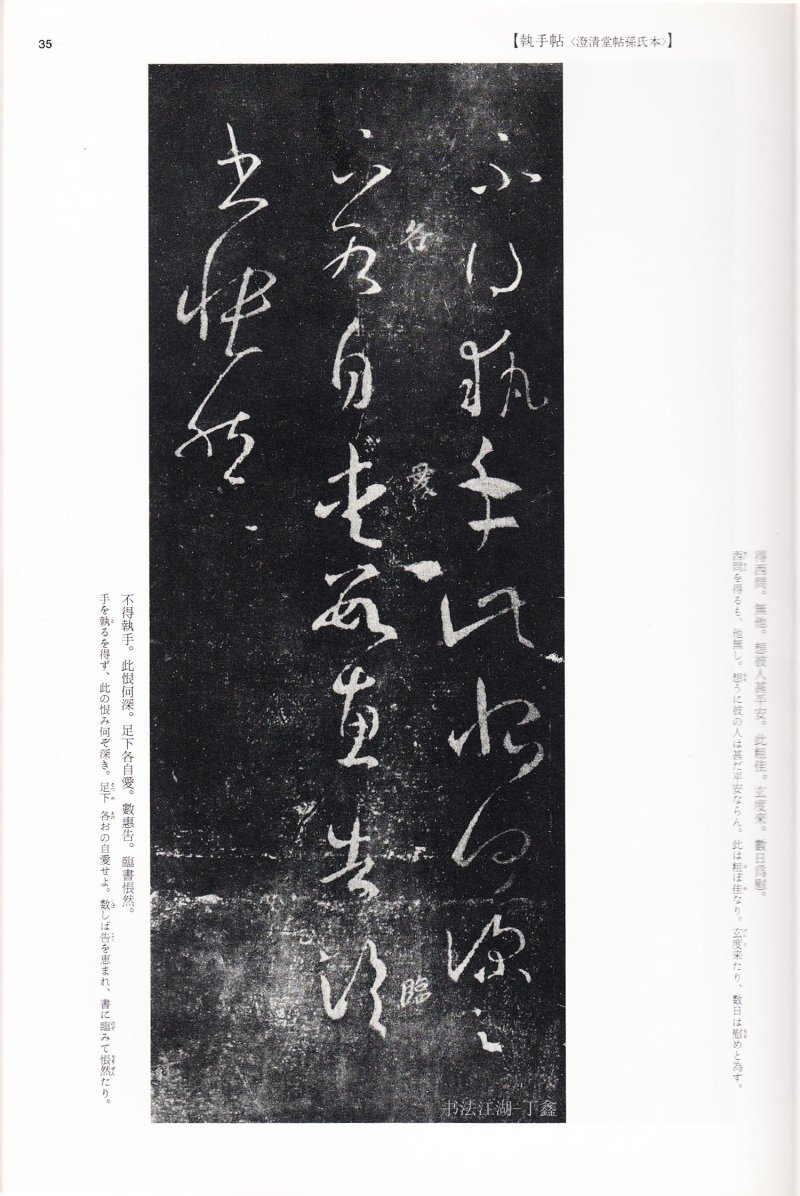 35
【執手帖〈澄清堂帖孫氏本〉】
得西問。無他。想彼人甚平安。此粗佳。玄度來。數日爲慰。
西問を得るも、他無し。想うに彼の人は甚だ平安ならん。此は粗ぼ佳なり。玄度来たり、数日は慰めと為す。
不得執手此恨何深足下
各自愛數惠告臨
書悵然
各
愛
臨
不得執手。此恨何深。足下各自愛。數惠告。臨書悵然。
手を執るを得ず、此の恨み何ぞ深き。足下 各おの自愛せよ。数しば告を恵まれ、書に臨みて悵然たり。
书法江湖-丁鑫